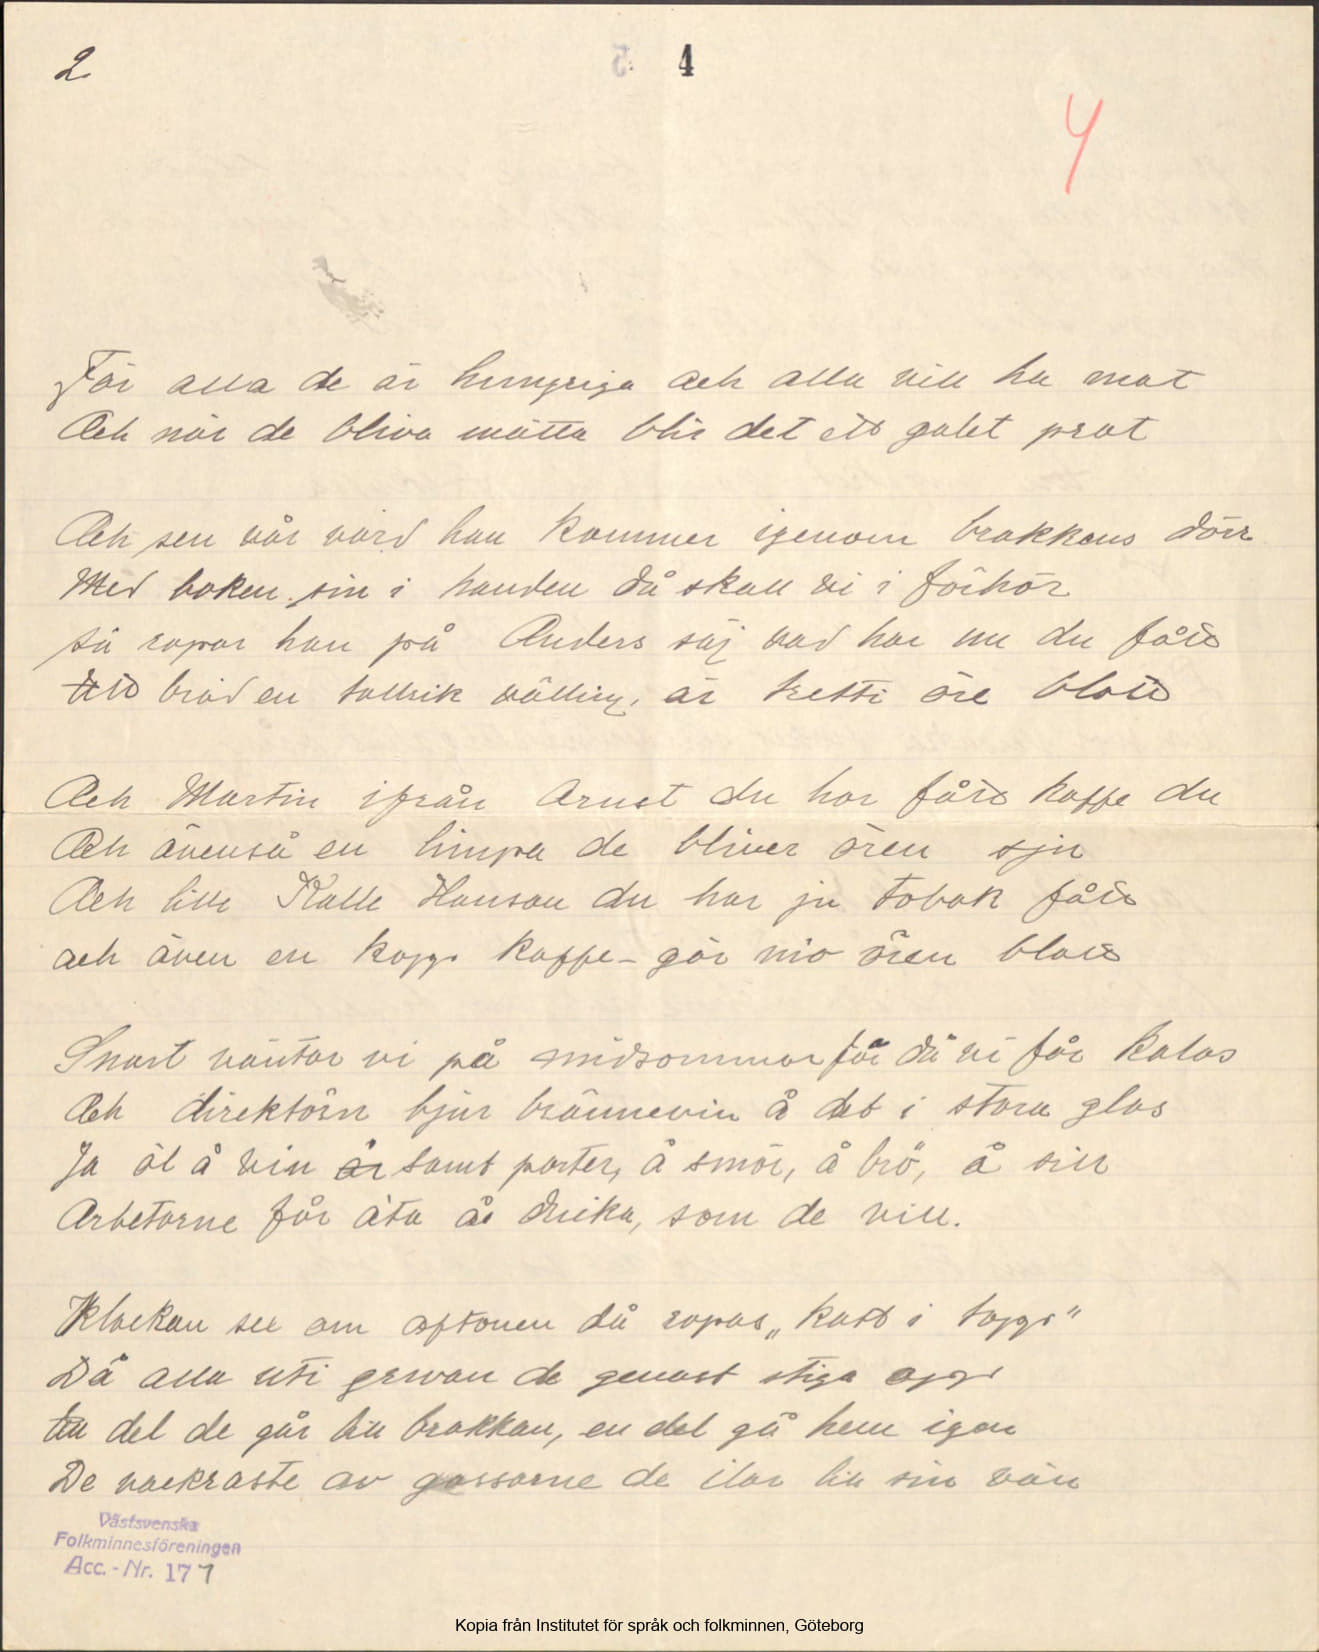 2
4
4
För alla de är hungriga och alla vill ha mat
Och när de bliva mätta blir det ett galet prat
Och sen vår värd han kommer igenom brakkens dörr
Med boken sin i handen då skall vi i förhör
så ropar han på Anders säj vad har nu du fått
bröd en tallrik välling, är tretti öre blott
Och Martin ifrån Arnet du har fått kaffe du
Och ävenså en limpa de bliver ören sju
Och lille Kalle Hanson du har ju tobak fått
och även en kopp kaffe - gör nio ören blott
Snart väntar vi på midsommar för då vi får kalas
Och direktörn bjur brännevin å det i stora glas
Ja öl å vin är samt porter, å smör, å brö, å sill
Arbetarne får äta å dricka, som de vill.
Klockan sex om aftonen då ropas „kast i topp"
Då alla uti gruvan de genast stiga opp
En del de går till brakkan, en del gå hem igen
De vackraste av gossarne de ilar till sin vän
Västsvenska
Folkminnesföreningen
Acc.-Nr. 177
Kopia från Institutet för språk och folkminnen, Göteborg